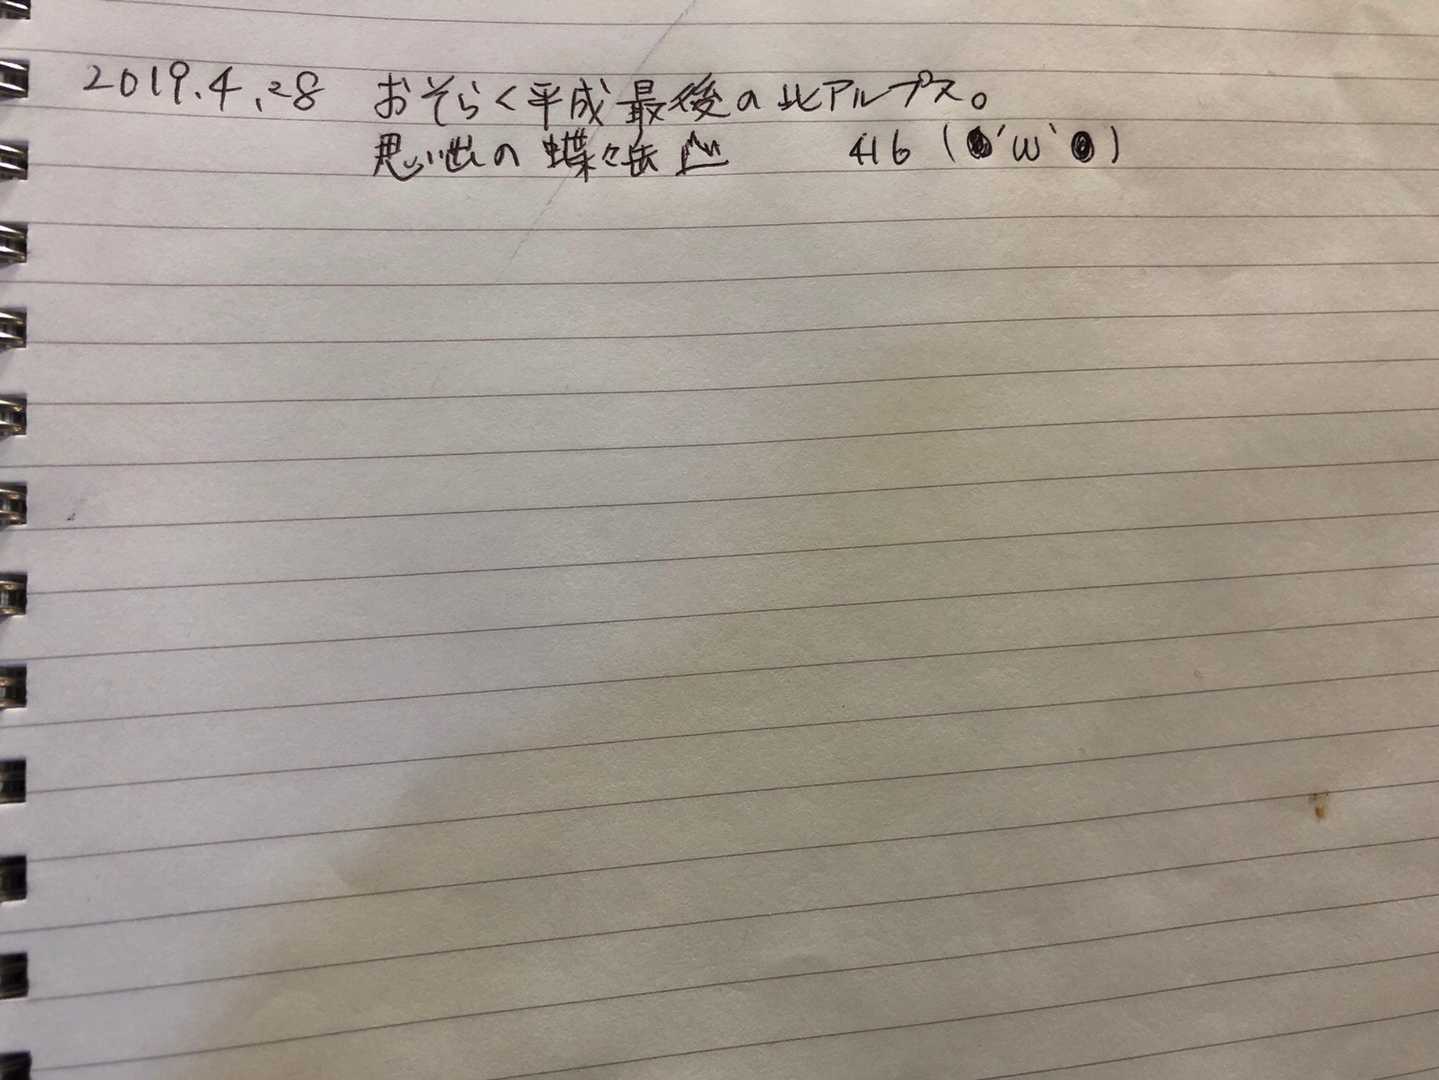 2019.4.28 おそらく平成最後の北アルプス。
思い出の蝶々岳 416 (●'ω`●)